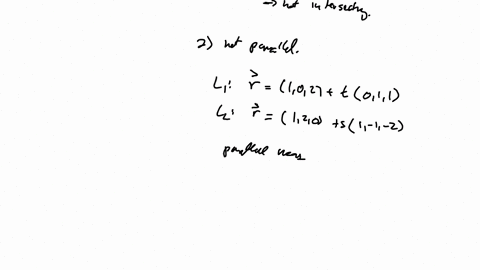 → not intersecting.
2) not parallel.
L₁: r⃗ = (1,0,2) + t(0,1,1)
L₂: r⃗ = (1,2,0) +s(1,-1,-2)
parallel means